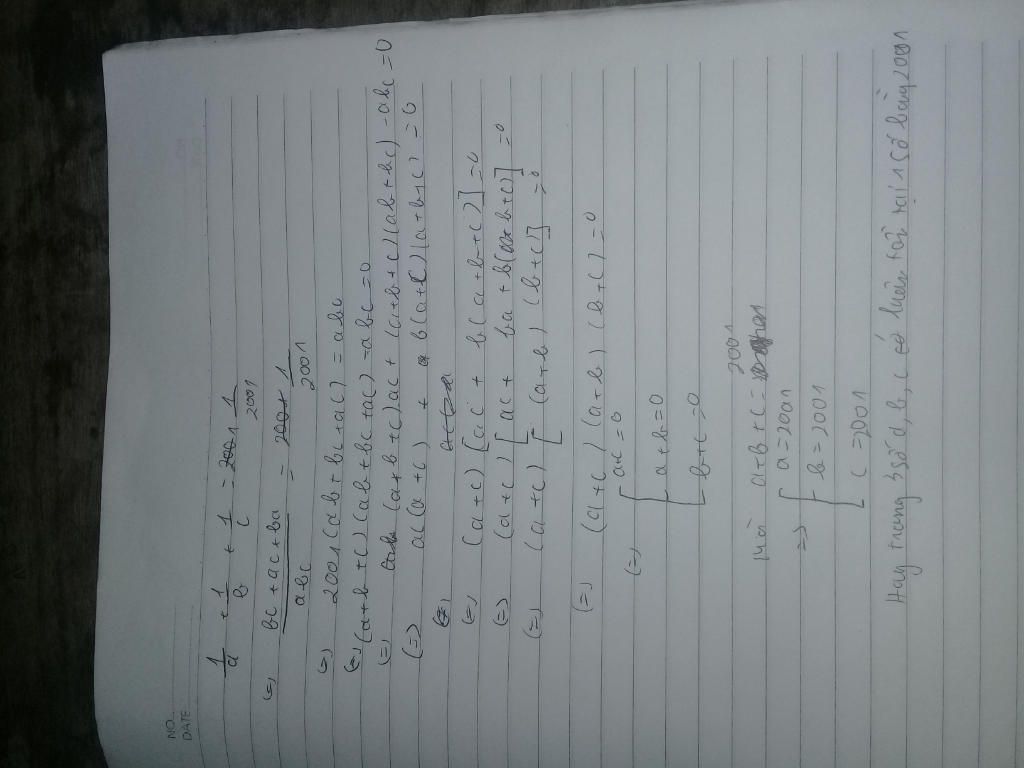 NO.
DATE
1/a + 1/b + 1/c = 1/2001
(=) (bc + ac + ba)/abc = 1/2001
(=) 2001 (ab + bc + ac) = abc
(=) (a+b+c) (ab+bc+ac) - abc = 0
(=) (a+b+c) ac + (a+b+c) (ab+bc) - abc = 0
(=) ac(a+c) + b(a+c) (a+b+c) = 0
(=) (a+c) [ac + b(a+b+c)] = 0
(=) (a+c) [ac + ba + b(b+c)] = 0
(=) (a+c) [(a+b) (b+c)] = 0
(=) (a+c) (a+b) (b+c) = 0
(=) [ a+c = 0
a+b = 0
b+c = 0
Mà a+b+c = 2001
=> [ a = 2001
b = 2001
c = 2001
Hay trong 3 số a, b, c có luôn tồn tại 1 số bằng 2001